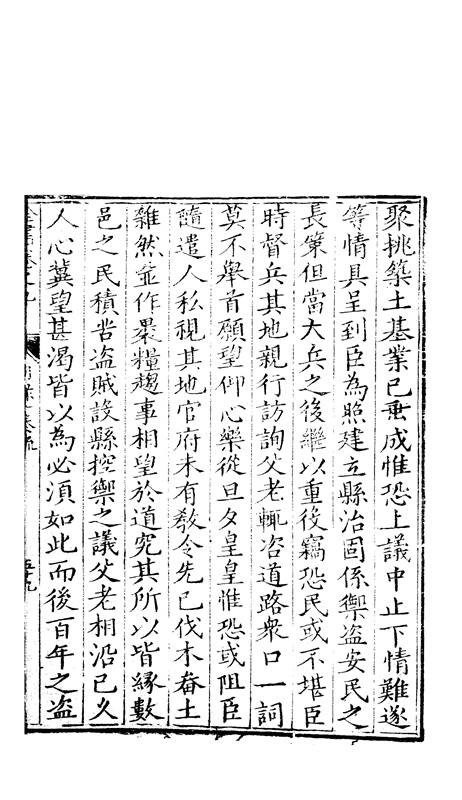 聚挑築土基業已垂成惟恐上議中止下情難遂
等情具呈到臣為照建立縣治固係禦盜安民之
長策但當大兵之後繼以重役竊恐民或不堪臣
時督兵其地親行訪詢父老輒咨道路衆口一詞
莫不舉首願望仰心樂從旦夕皇皇惟恐或阻臣
隨遣人私視其地官府未有教令先已伐木畚土
雜然並作裹糧趨事相望於道究其所以皆緣數
邑之民積苦盜賊設縣控禦之議父老相沿已久
人心冀望甚渴皆以為必須如此而後百年之盜